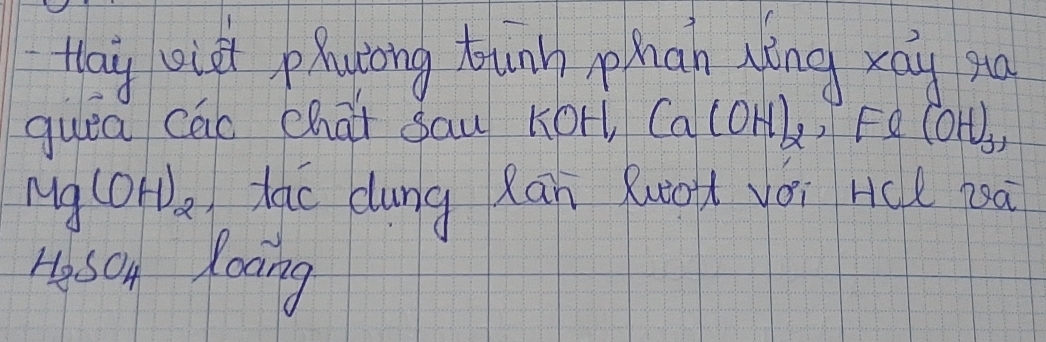 - Hãy viết phương trình phản ứng xảy ra
giữa các chất sau KOH, Ca(OH)₂, Fe(OH)₃,
Mg(OH)₂, tác dụng lần lượt với HCl và
H₂SO₄ loãng